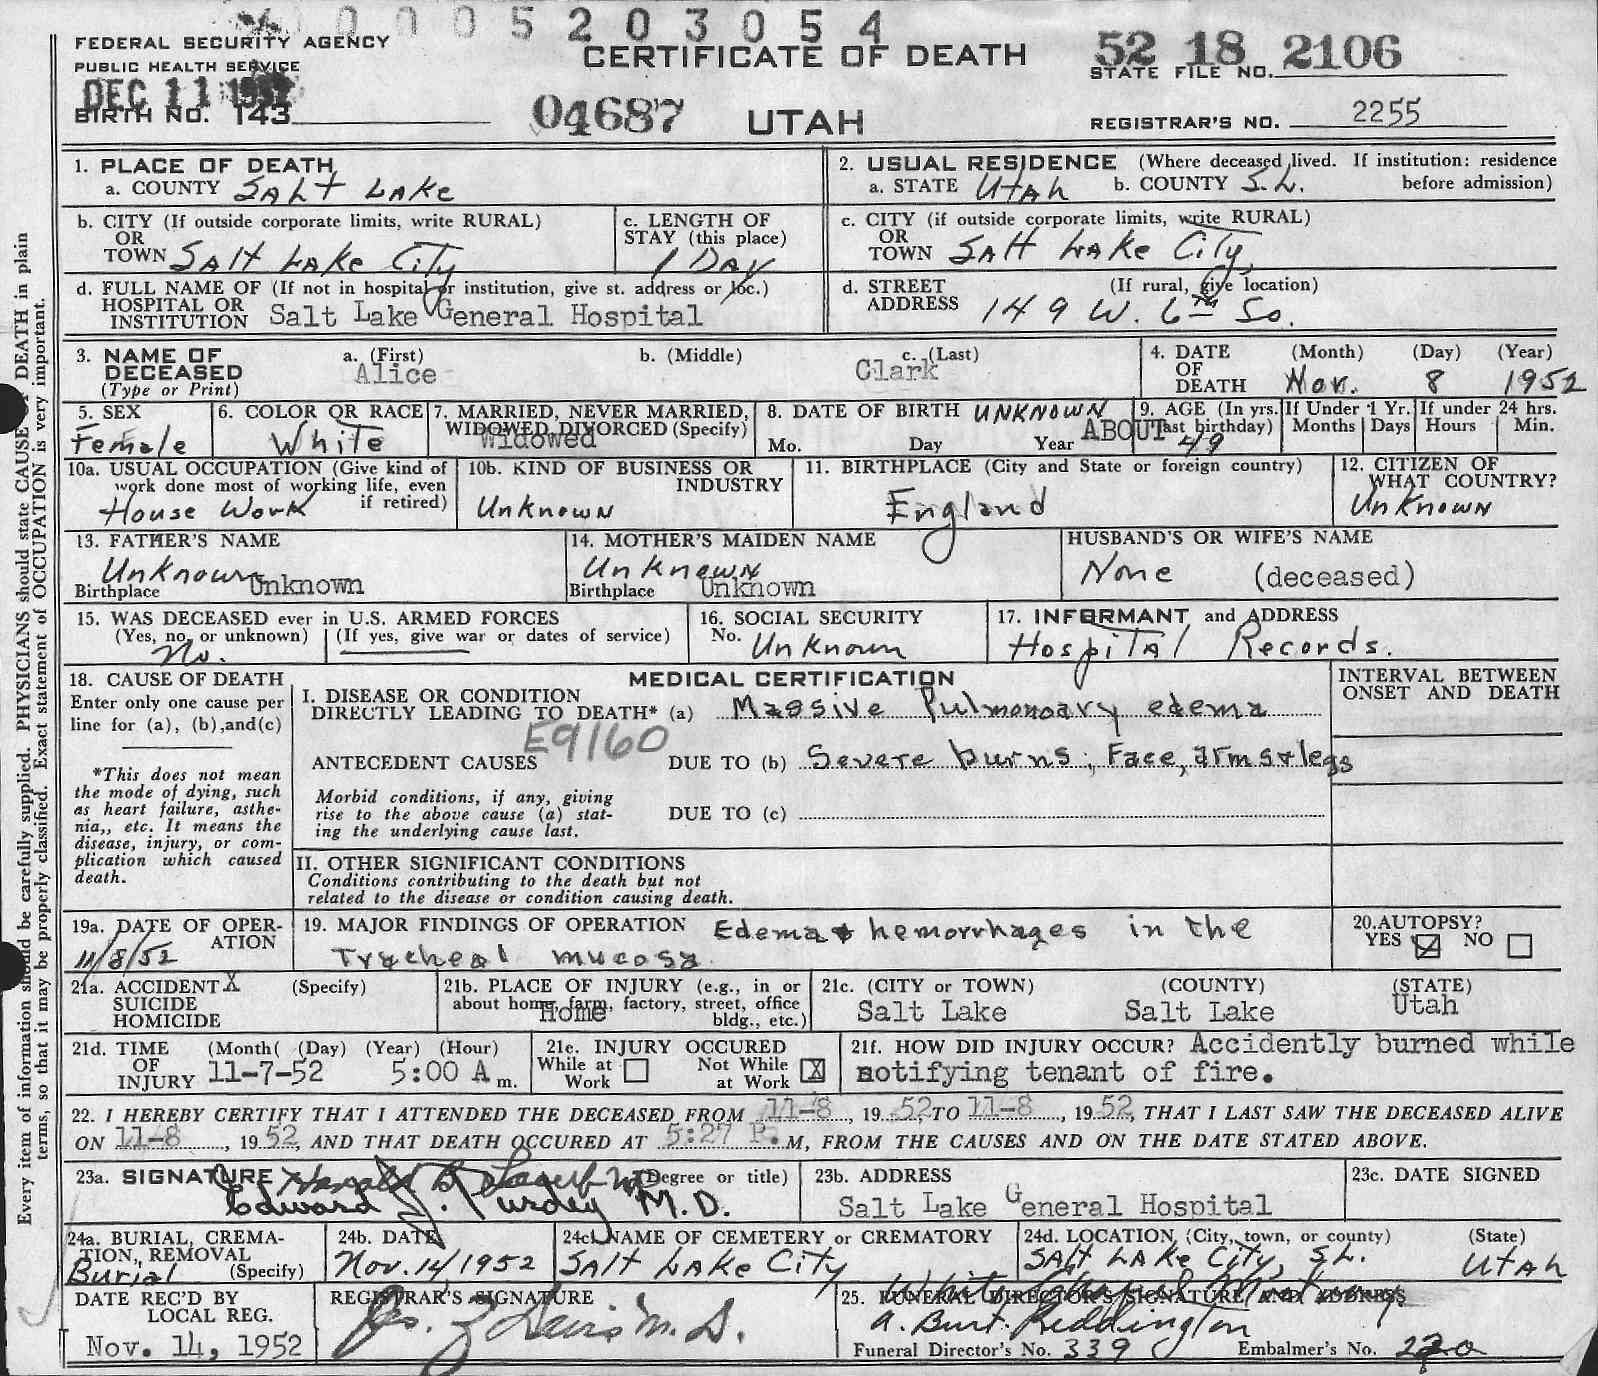 0 0 0 5 2 0 3 0 5 4
FEDERAL SECURITY AGENCY
PUBLIC HEALTH SERVICE
CERTIFICATE OF DEATH
52 18 2106
STATE FILE NO.
DEC 11 1952
BIRTH NO. 143
04687 UTAH
REGISTRAR'S NO. 2255
1. PLACE OF DEATH
a. COUNTY SALT LAKE
2. USUAL RESIDENCE (Where deceased lived. If institution: residence before admission)
a. STATE UTAH b. COUNTY S.L.
b. CITY (If outside corporate limits, write RURAL)
OR
TOWN SALT LAKE CITY
c. LENGTH OF
STAY (this place)
1 DAY
c. CITY (if outside corporate limits, write RURAL)
OR
TOWN SALT LAKE CITY,
d. FULL NAME OF (If not in hospital or institution, give st. address or loc.)
HOSPITAL OR
INSTITUTION Salt Lake General Hospital
d. STREET (If rural, give location)
ADDRESS 149 W. 6th So.
3. NAME OF DECEASED
(Type or Print)
a. (First) b. (Middle) c. (Last)
Alice Clark
4. DATE OF DEATH
(Month) (Day) (Year)
Nov. 8 1952
5. SEX
Female
6. COLOR OR RACE
White
7. MARRIED, NEVER MARRIED,
WIDOWED, DIVORCED (Specify)
Widowed
8. DATE OF BIRTH UNKNOWN
Mo. Day Year
9. AGE (In yrs. last birthday)
ABOUT 49
If Under 1 Yr.
Months Days
If under 24 hrs.
Hours Min.
10a. USUAL OCCUPATION (Give kind of
work done most of working life, even
if retired)
House Work
10b. KIND OF BUSINESS OR
INDUSTRY
Unknown
11. BIRTHPLACE (City and State or foreign country)
England
12. CITIZEN OF
WHAT COUNTRY?
Unknown
13. FATHER'S NAME
Unknown
Birthplace Unknown
14. MOTHER'S MAIDEN NAME
Unknown
Birthplace Unknown
HUSBAND'S OR WIFE'S NAME
None (deceased)
15. WAS DECEASED ever in U.S. ARMED FORCES
(Yes, no, or unknown) (If yes, give war or dates of service)
No.
16. SOCIAL SECURITY
No. Unknown
17. INFORMANT and ADDRESS
Hospital Records.
18. CAUSE OF DEATH
Enter only one cause per
line for (a), (b), and (c)
*This does not mean
the mode of dying, such
as heart failure, asthe-
nia,, etc. It means the
disease, injury, or com-
plication which caused
death.
MEDICAL CERTIFICATION
INTERVAL BETWEEN
ONSET AND DEATH
I. DISEASE OR CONDITION
DIRECTLY LEADING TO DEATH* (a) Massive Pulmonoary edema
E9160
ANTECEDENT CAUSES DUE TO (b) Severe burns, Face, arms & legs
Morbid conditions, if any, giving
rise to the above cause (a) stat-
ing the underlying cause last.
DUE TO (c)
II. OTHER SIGNIFICANT CONDITIONS
Conditions contributing to the death but not
related to the disease or condition causing death.
19a. DATE OF OPER-
ATION
11/8/52
19. MAJOR FINDINGS OF OPERATION Edema & hemorrhages in the
Tracheal mucosa
20. AUTOPSY?
YES NO
21a. ACCIDENT X (Specify)
SUICIDE
HOMICIDE
21b. PLACE OF INJURY (e.g., in or
about home, farm, factory, street, office
bldg., etc.)
Home
21c. (CITY OR TOWN) (COUNTY) (STATE)
Salt Lake Salt Lake Utah
21d. TIME (Month( (Day) (Year) (Hour)
OF
INJURY 11-7-52 5:00 A m.
21e. INJURY OCCURED
While at Work Not While at Work X
21f. HOW DID INJURY OCCUR? Accidently burned while
notifying tenant of fire.
22. I HEREBY CERTIFY THAT I ATTENDED THE DECEASED FROM 11-8, 19 52, TO 11-8, 19 52, THAT I LAST SAW THE DECEASED ALIVE
ON 11-8, 19 52, AND THAT DEATH OCCURED AT 5:27 P. M, FROM THE CAUSES AND ON THE DATE STATED ABOVE.
23a. SIGNATURE (Degree or title)
Harold
Edward J. Purdey M.D.
23b. ADDRESS
Salt Lake General Hospital
23c. DATE SIGNED
24a. BURIAL, CREMA-
TION, REMOVAL
Burial (Specify)
24b. DATE
Nov. 14/1952
24c. NAME OF CEMETERY or CREMATORY
SALT LAKE CITY
24d. LOCATION (City, town, or county) (State)
SALT LAKE CITY, S.L. UTAH
DATE REC'D BY
LOCAL REG.
Nov. 14, 1952
REGISTRAR'S SIGNATURE
M.D.
25. FUNERAL DIRECTOR'S SIGNATURE AND ADDRESS
White Chapel Mortuary
A. Burt. Reddington
Funeral Director's No. 339 Embalmer's No.
Every item of information should be carefully supplied. PHYSICIANS should state CAUSE OF DEATH in plain
terms, so that it may be properly classified. Exact statement of OCCUPATION is very important.